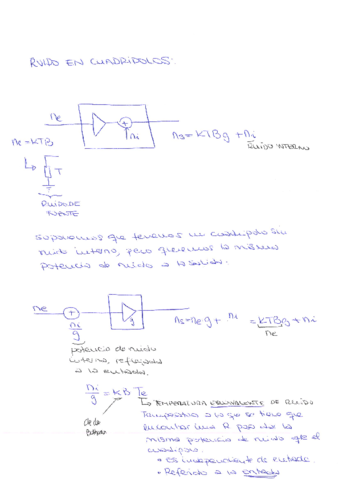 RUIDO EN CUADRIPOLOS:
ne
ni
ns = KTBg + ni
ne = KTB
RUIDO INTERNO
T
RUIDO DE
FUENTE
Supongamos que tenemos un cuadripolo sin
ruido interno, pero queremos la misma
potencia de ruido a la salida.
ne
ni
g
g
ns = ne g + ni = KTBg + ni
ne
potencia de ruido
interno, reflejada
a la entrada.
ni/g = KB Te
TEMPERATURA EQUIVALENTE DE RUIDO
Temperatura a la que se tiene que
encontrar una R para dar la
misma potencia de ruido que el
cuadripolo.
• es independiente de entrada
• Referido a la entrada